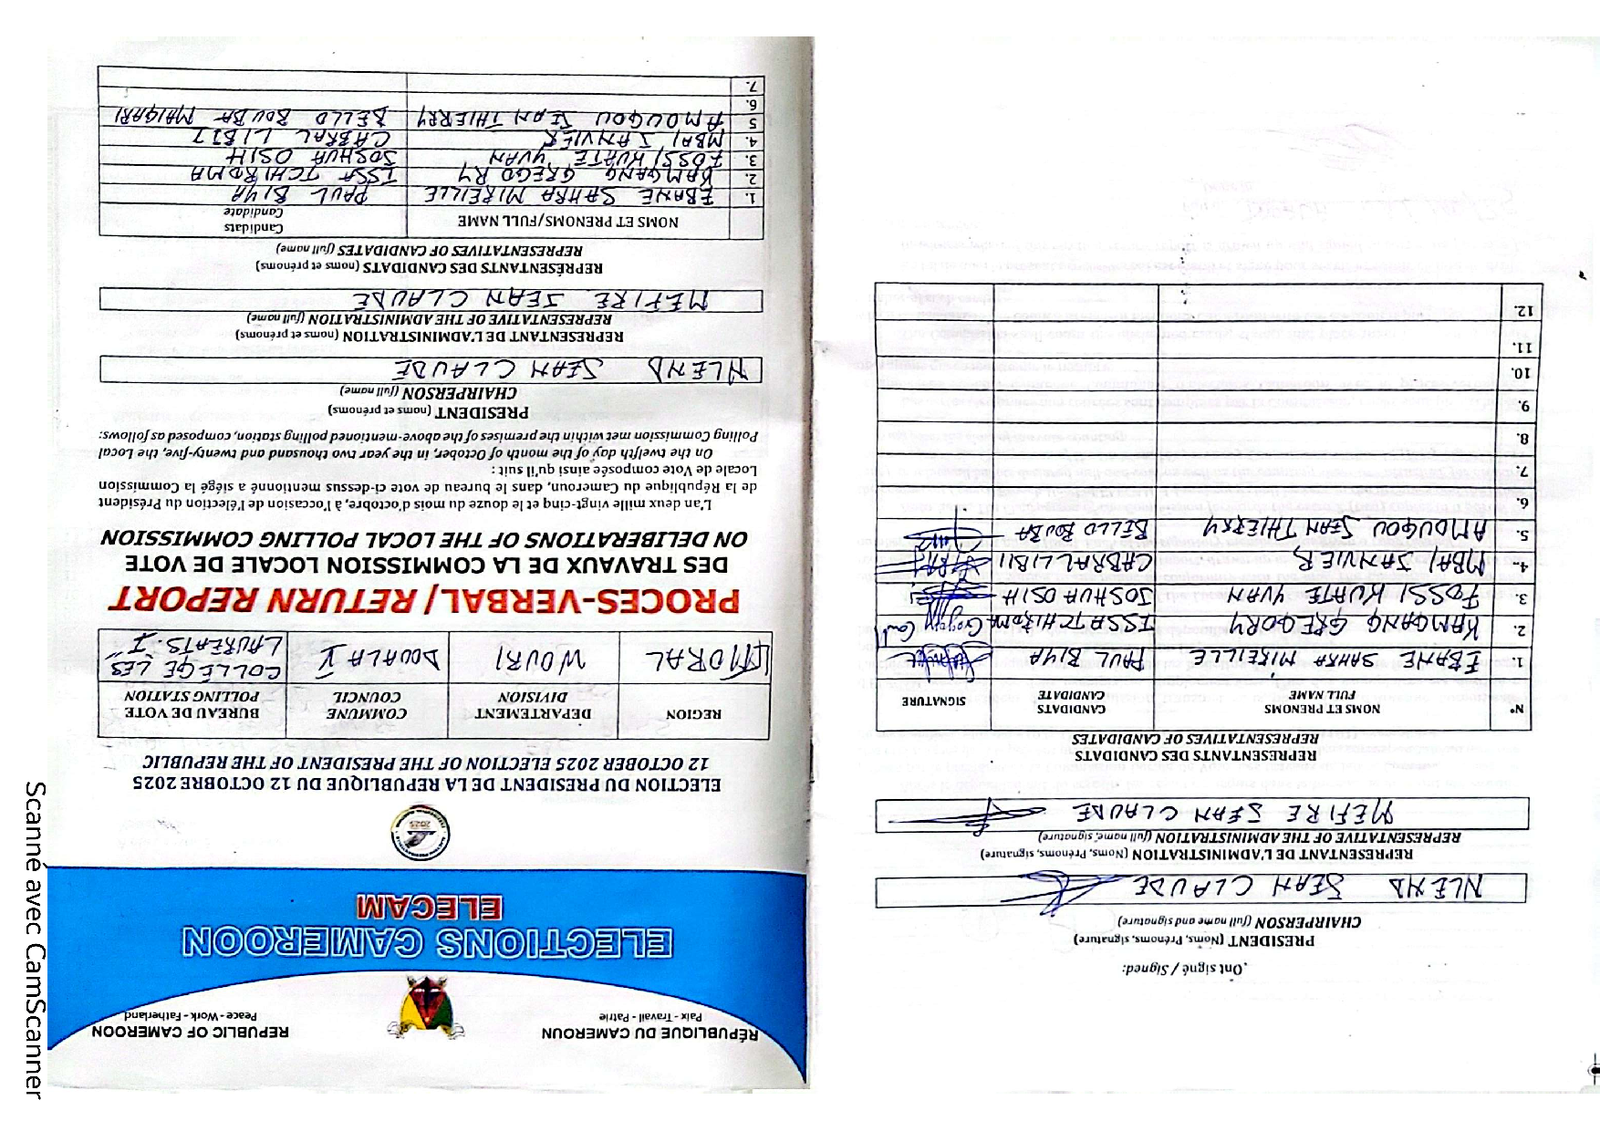 RÉPUBLIQUE DU CAMEROUN
Paix - Travail - Patrie
REPUBLIC OF CAMEROON
Peace - Work - Fatherland
ELECTIONS CAMEROON
ELECAM
ELECTION DU PRESIDENT DE LA REPUBLIQUE DU 12 OCTOBRE 2025
12 OCTOBER 2025 ELECTION OF THE PRESIDENT OF THE REPUBLIC
REGION DEPARTEMENT COMMUNE BUREAU DE VOTE
DIVISION COUNCIL POLLING STATION
LITTORAL WOURI DOUALA V COLLEGE LES
LAUREATS. I
PROCES-VERBAL/ RETURN REPORT
DES TRAVAUX DE LA COMMISSION LOCALE DE VOTE
ON DELIBERATIONS OF THE LOCAL POLLING COMMISSION
L'an deux mille vingt-cinq et le douze du mois d'octobre, à l'occasion de l'élection du Président
de la République du Cameroun, dans le bureau de vote ci-dessus mentionné a siégé la Commission
Locale de Vote composée ainsi qu'il suit :
On the twelfth day of the month of October, in the year two thousand and twenty-five, the Local
Polling Commission met within the premises of the above-mentioned polling station, composed as follows:
PRESIDENT (noms et prénoms)
CHAIRPERSON (full name)
NLEND JEAN CLAUDE
REPRESENTANT DE L'ADMINISTRATION (noms et prénoms)
REPRESENTATIVE OF THE ADMINISTRATION (full name)
MEFIRE JEAN CLAUDE
REPRÉSENTANTS DES CANDIDATS (noms et prénoms)
REPRESENTATIVES OF CANDIDATES (full name)
NOMS ET PRENOMS/FULL NAME Candidats
Candidate
1. EBANE SAHRA MIREILLE PAUL BIYA
2. KAMGANG GREGORY ISSA TCHIROMA
3. FOSSI KUATE YVAN JOSHUA OSIH
4. MBAI JANVIER CABRAL LIBII
5 AMOUGOU JEAN THIERRY BELLO BOUBA MAIGARI
6.
7.
Ont signé / Signed:
PRÉSIDENT (Noms, Prénoms, signature)
CHAIRPERSON (full name and signature)
NLEND JEAN CLAUDE
REPRÉSENTANT DE L'ADMINISTRATION (Noms, Prénoms, signature)
REPRESENTATIVE OF THE ADMINISTRATION (full name, signature)
MEFIRE JEAN CLAUDE
REPRESENTANTS DES CANDIDATS
REPRESENTATIVES OF CANDIDATES
N° NOMS ET PRENOMS CANDIDATS SIGNATURE
FULL NAME CANDIDATE
1. EBANE SAHRA MIREILLE PAUL BIYA
2. KAMGANG GREGORY ISSA TCHIROMA
3. FOSSI KUATE YVAN JOSHUA OSIH
4. MBAI JANVIER CABRAL LIBII
5. AMOUGOU JEAN THIERRY BELLO BOUBA
6.
7.
8.
9.
10.
11.
12.
Scanné avec CamScanner